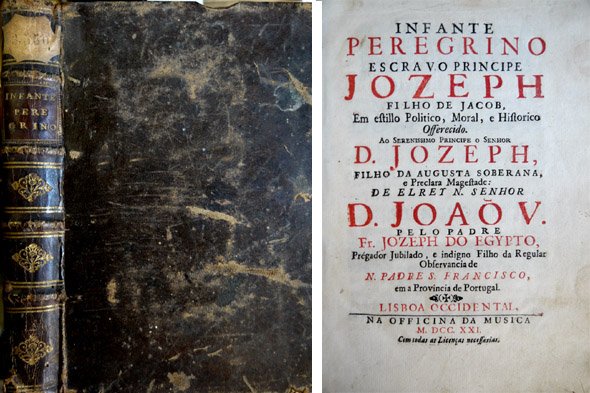 INFANTE
PERE
GRINO
INFANTE
PEREGRINO
ESCRAVO PRINCIPE
JOZEPH
FILHO DE JACOB,
Em estillo Politico, Moral, e Historico
Offerecido.
AO SERENISSIMO PRINCIPE O SENHOR
D. JOZEPH,
FILHO DA AUGUSTA SOBERANA,
e Preclara Magestade:
DE ELREY N. SENHOR
D. JOAÕ V.
PELO PADRE
Fr. JOZEPH DO EGYPTO,
Prégador Jubilado, e indigno Filho da Regular
Observancia de
N. PADRE S. FRANCISCO,
em a Provincia de Portugal.
LISBOA OCCIDENTAL,
NA OFFICINA DA MUSICA
M. DCC. XXI.
Com todas as Licenças necessarias.